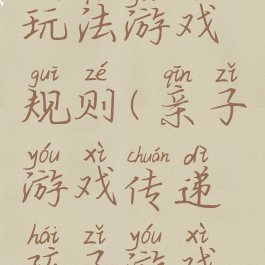 玩法游戏
guī zé qīn zǐ
规则(亲子
yóu xì chuán dì
游戏传递
hái zǐ yóu xì